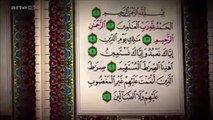 arte HD
بِسْمِ اللَّهِ الرَّحْمَٰنِ الرَّحِيمِ
الْحَمْدُ لِلَّهِ رَبِّ الْعَالَمِينَ الرَّحْمَٰنِ
الرَّحِيمِ مَالِكِ يَوْمِ الدِّينِ
إِيَّاكَ نَعْبُدُ وَإِيَّاكَ نَسْتَعِينُ
اهْدِنَا الصِّرَاطَ الْمُسْتَقِيمَ صِرَاطَ
الَّذِينَ أَنْعَمْتَ عَلَيْهِمْ غَيْرِ الْمَغْضُوبِ
عَلَيْهِمْ وَلَا الضَّالِّينَ